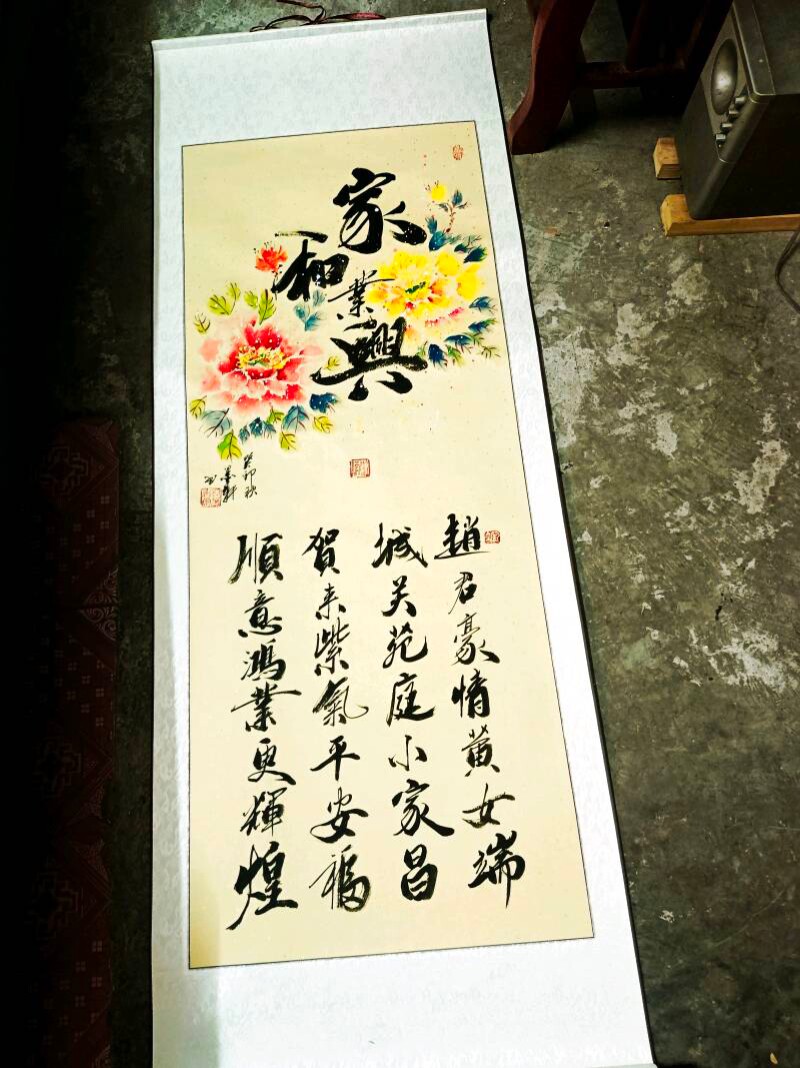 家和業興
癸卯秋
趙君豪情黄女端
城关苑庭小家昌
賀来紫氣平安福
順意鴻業更輝煌